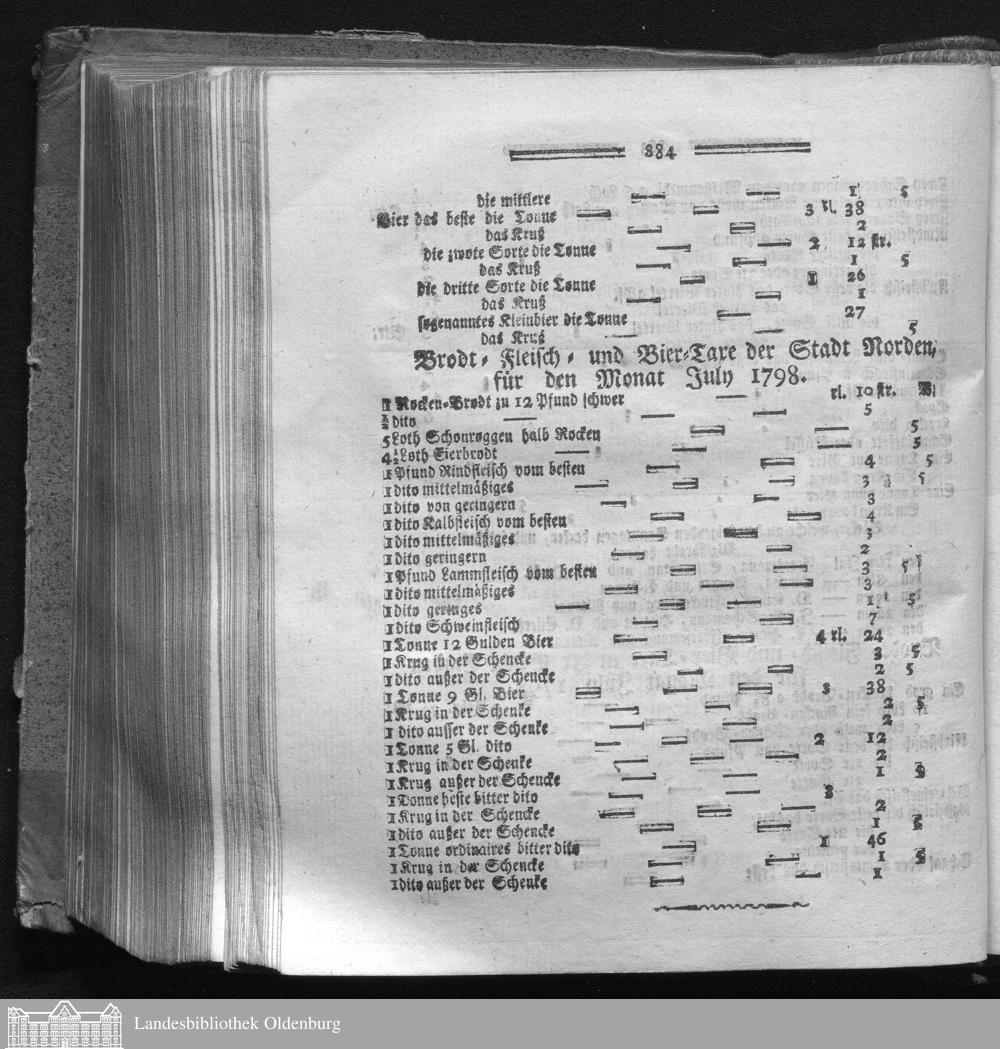 884
die mittlere — — 1 5
Bier das beste die Tonne — — — 3 rl. 38
das Kruß — — 2
die zwote Sorte die Tonne — — 2 12 ßr.
das Kruß — — 1 5
die dritte Sorte die Tonne — — 1 26
das Kruß — — 1
sogenanntes Kleinbier die Tonne — 27
das Kruß — — 5
Brodt- Fleisch- und Bier-Taxe der Stadt Norden,
für den Monat July 1798.
1 Rocken-Brodt zu 12 Pfund schwer — rl. 10 ßr. W.
½ dito — — — 5
5 Loth Schonroggen halb Rocken — — 5
4½ Loth Eierbrodt — — — 5
1 Pfund Rindfleisch vom besten — — 4 5
1 dito mittelmäßiges — — — 3 5
1 dito von geringern — — 3
1 dito Kalbfleisch vom besten — — 4
1 dito mittelmäßiges — — 3
1 dito geringern — — 2
1 Pfund Lammfleisch vom besten — — 3 5
1 dito mittelmäßiges — — — 3
1 dito geringes — — — 1 5
1 dito Schweinfleisch — — 7
1 Tonne 12 Gulden Bier — — 4 rl. 24
1 Krug in der Schencke — — 3 5
1 dito außer der Schencke — — 2 5
1 Tonne 9 Gl. Bier — — — 3 38
1 Krug in der Schenke — — 2 5
1 dito ausser der Schenke — — 2
1 Tonne 5 Gl. dito — — — 2 12
1 Krug in der Schenke — — — 2
1 Krug außer der Schencke — — 1
1 Tonne beste bitter dito — — 3
1 Krug in der Schencke — — — 2
1 dito außer der Schencke — — 1
1 Tonne ordinaires bitter dito — 1 46
1 Krug in der Schencke — — 1
1 dito außer der Schenke — — 1
Landesbibliothek Oldenburg